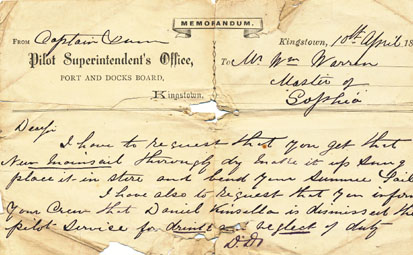 MEMORANDUM.
FROM Captain
Pilot Superintendent's Office,
PORT AND DOCKS BOARD,
Kingstown,
Kingstown, 10th April 18
To Mr Wm Warren
Master of
"Sophia"
I have to request that you get that
New Mainsail thoroughly dry make it up snug
place it in store and bend your Summer Sail
I have also to request that you inform
Your Crew that Daniel Kinsella is dismissed the
pilot Service for drink and neglect of duty